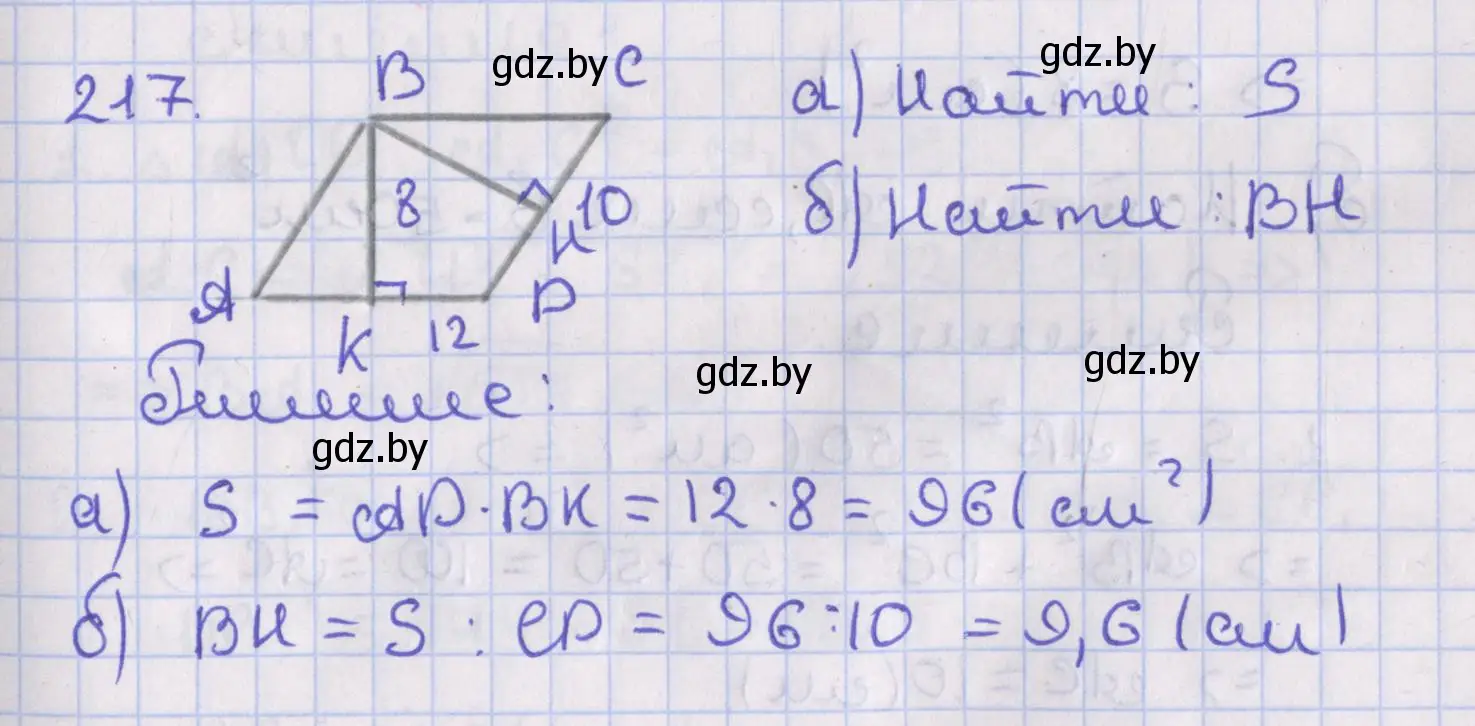 217.
B
gdz.by C
gdz.by
а) Найти: S
8
H 10
б) Найти: BH
A
K
12
D
gdz.by
gdz.by
Решение:
gdz.by
а) S = AD · BK = 12 · 8 = 96 (см²)
б) BH = S : CD = 96 : 10 = 9,6 (см)